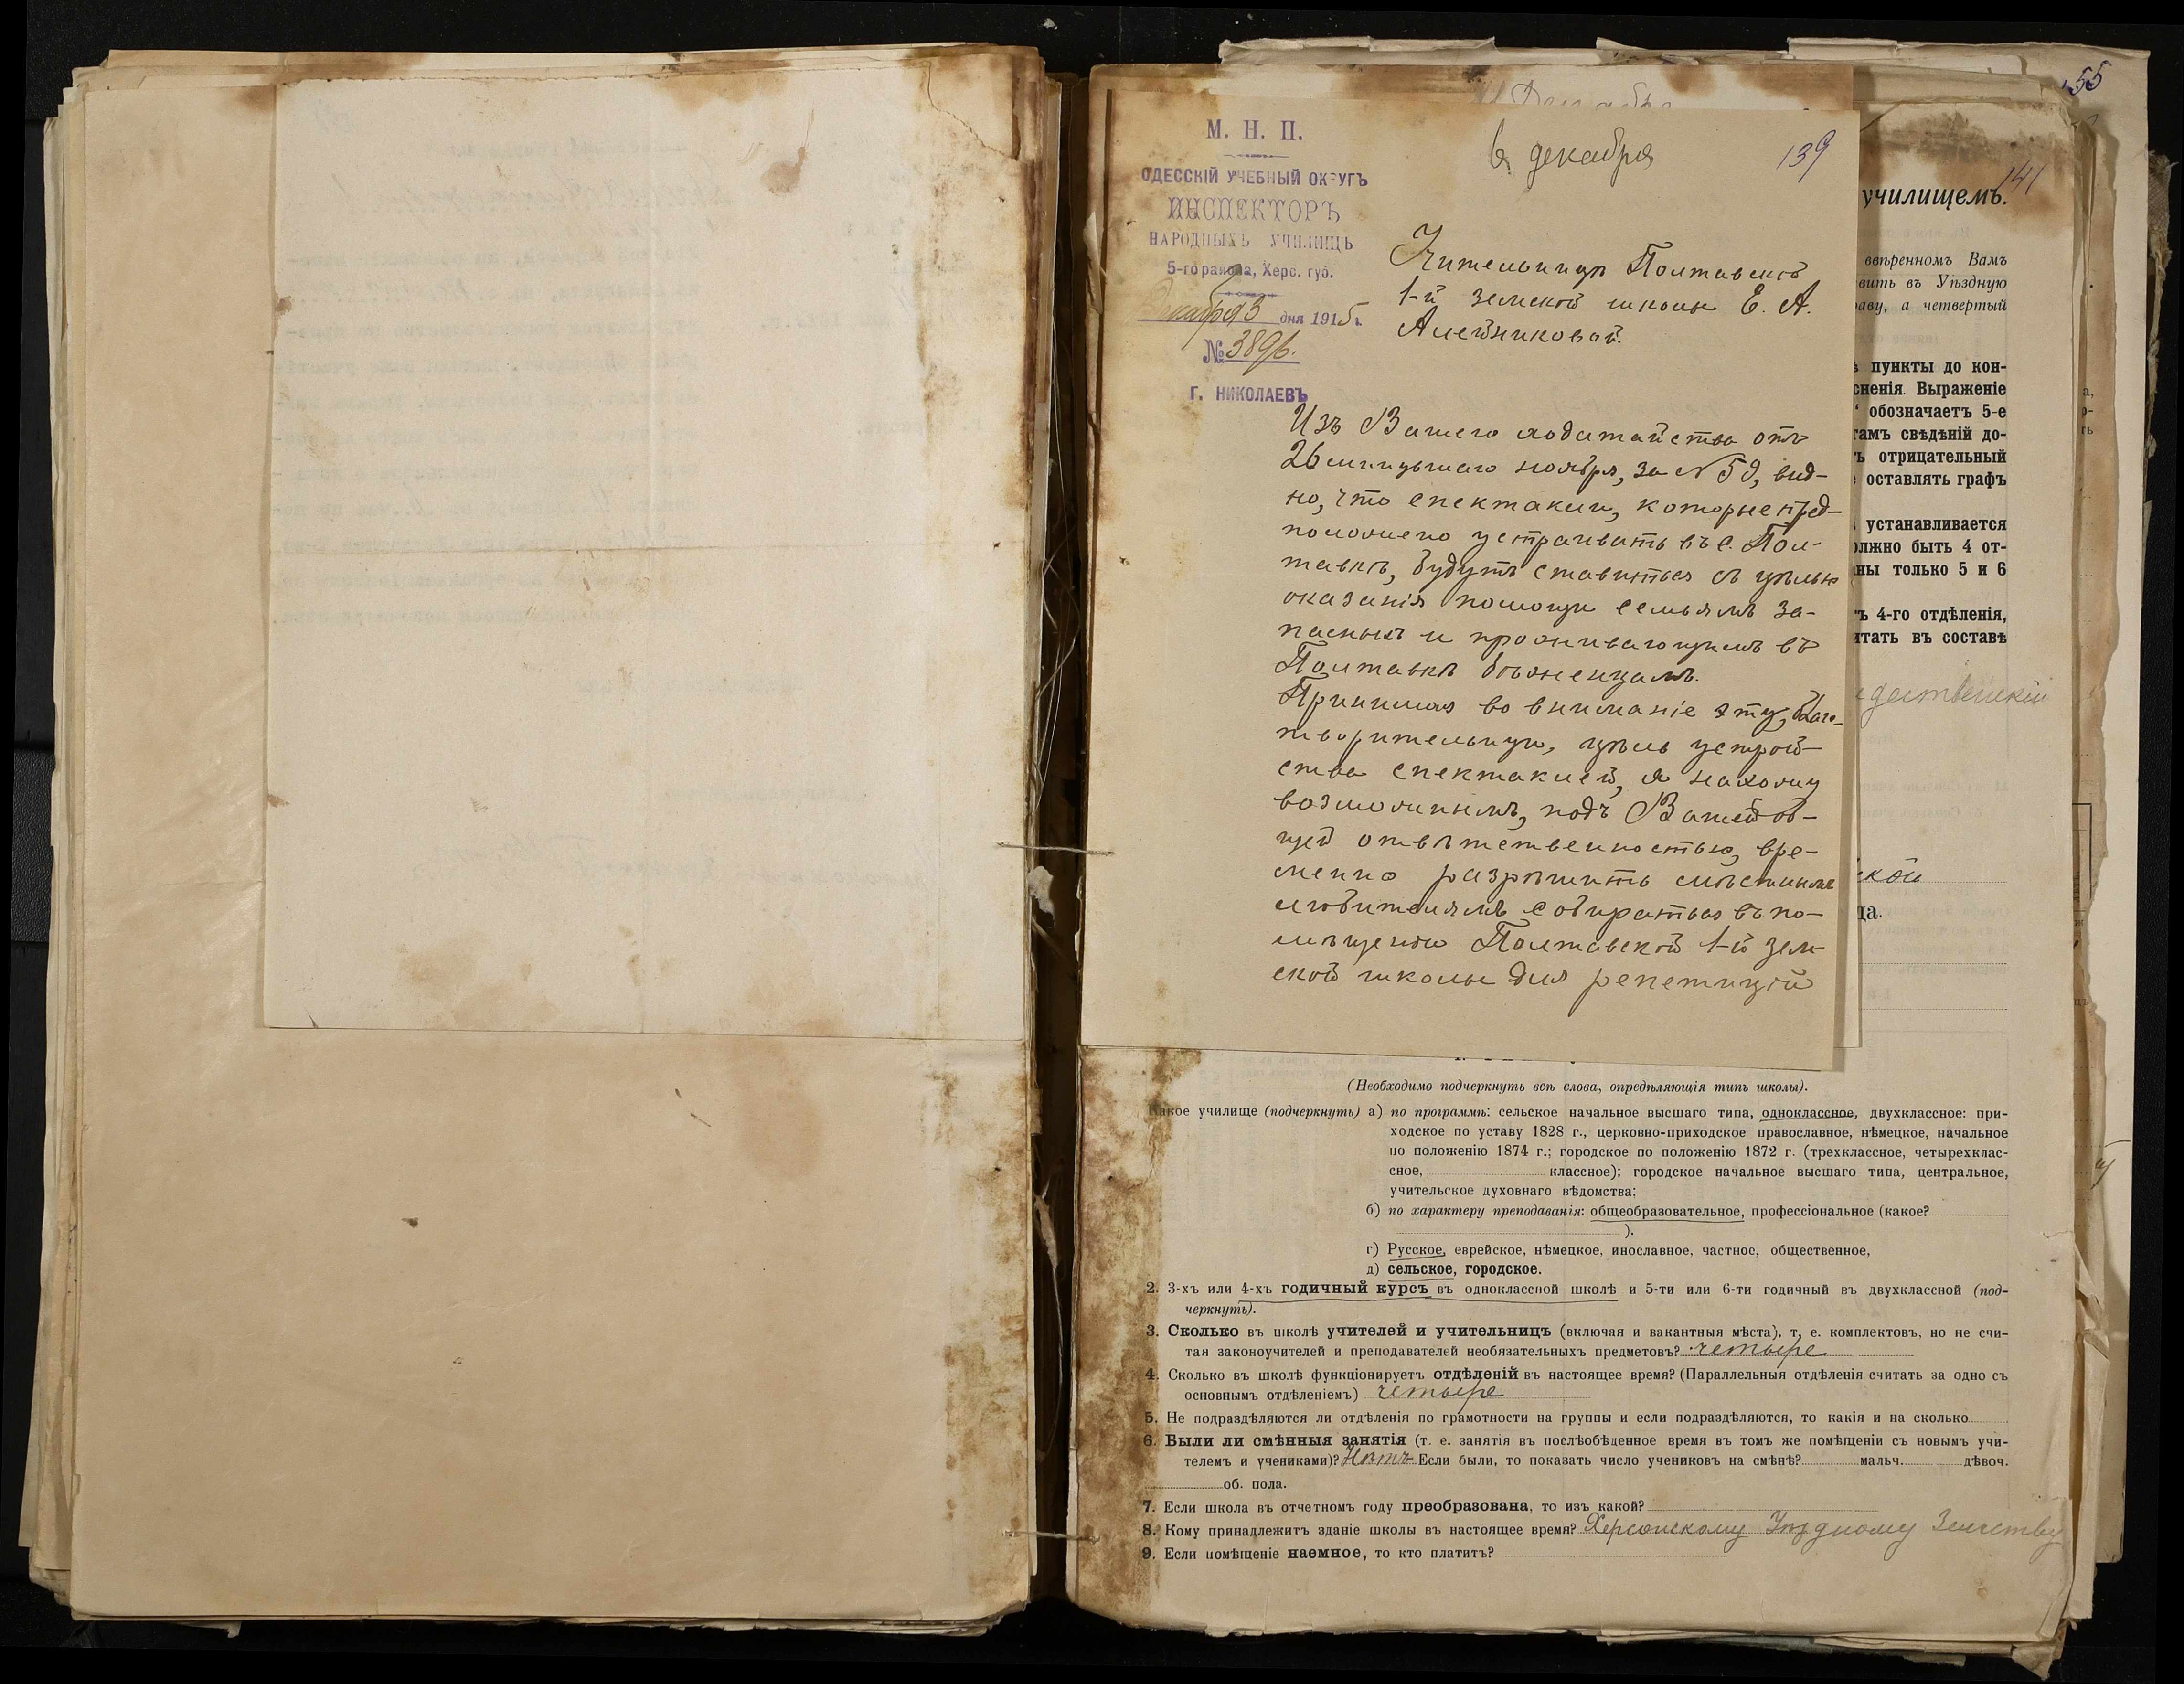 155
141
М. Н. П.
ОДЕССКІЙ УЧЕБНЫЙ ОКРУГЪ
ИНСПЕКТОРЪ
НАРОДНЫХЪ УЧИЛИЩЪ
5-го района, Херс. губ.
Декабря 3 дня 1915 г.
№ 3896.
Г. НИКОЛАЕВЪ
6 декабря
139
Учительницѣ Полтавской
1-й земской школы Е. А.
Алейниковой.
Изъ Вашего ходатайства отъ
26 минувшаго ноября, за №59, вид-
но, что спектакли, которые пред-
положено устраивать въ с. Пол-
тавкѣ, будутъ ставиться съ цѣлью
оказанія помощи семьямъ за-
пасныхъ и проживающимъ въ
Полтавкѣ бѣженцамъ.
Принимая во вниманіе эту, благо-
творительную, цѣль устрой-
ства спектаклей, я нахожу
возможнымъ, подъ Вашей об-
щей отвѣтственностью, вре-
менно разрѣшить мѣстнымъ
любителямъ собираться въ по-
мѣщеніи Полтавской 1-й зем-
ской школы для репетицій
училищемъ.
ввѣренномъ Вамъ
вить въ Уѣздную
раву, а четвертый
пункты до кон-
сненія. Выраженіе
обозначаетъ 5-е
тамъ свѣдѣній до-
ъ отрицательный
оставлять графъ
устанавливается
олжно быть 4 от-
ны только 5 и 6
ъ 4-го отдѣленія,
итать въ составѣ
ской
да.
(Необходимо подчеркнуть всѣ слова, опредѣляющія типъ школы).
Какое училище (подчеркнуть) а) по программѣ: сельское начальное высшаго типа, одноклассное, двухклассное: при-
ходское по уставу 1828 г., церковно-приходское православное, нѣмецкое, начальное
по положенію 1874 г.; городское по положенію 1872 г. (трехклассное, четырехклас-
сное, классное); городское начальное высшаго типа, центральное,
учительское духовнаго вѣдомства;
б) по характеру преподаванія: общеобразовательное, профессіональное (какое?
).
г) Русское, еврейское, нѣмецкое, инославное, частное, общественное,
д) сельское, городское.
2. 3-хъ или 4-хъ годичный курсъ въ одноклассной школѣ и 5-ти или 6-ти годичный въ двухклассной (под-
черкнуть).
3. Сколько въ школѣ учителей и учительницъ (включая и вакантныя мѣста), т. е. комплектовъ, но не счи-
тая законоучителей и преподавателей необязательныхъ предметовъ? четыре
4. Сколько въ школѣ функціонируетъ отдѣленій въ настоящее время? (Параллельныя отдѣленія считать за одно съ
основнымъ отдѣленіемъ) четыре
5. Не подраздѣляются ли отдѣленія по грамотности на группы и если подраздѣляются, то какія и на сколько
6. Были ли смѣнныя занятія (т. е. занятія въ послѣобѣденное время въ томъ же помѣщеніи съ новымъ учи-
телемъ и учениками)? Нѣтъ Если были, то показать число учениковъ на смѣнѣ? мальч. дѣвоч.
об. пола.
7. Если школа въ отчетномъ году преобразована, то изъ какой?
8. Кому принадлежитъ зданіе школы въ настоящее время? Херсонскому Уѣздному Земству
9. Если помѣщеніе наемное, то кто платитъ?